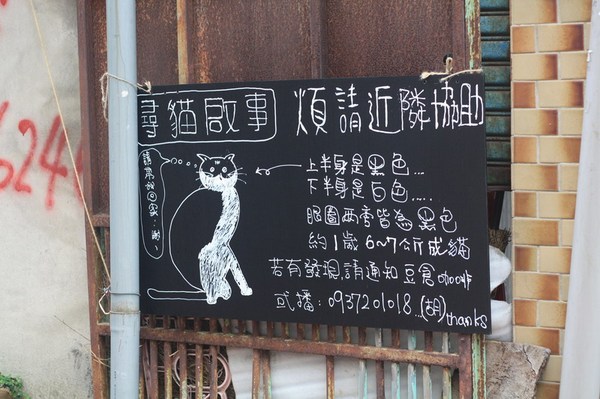 尋貓啟事 煩請近隣協助
請帶我回家 謝
上半身是黑色...
下半身是白色....
眼圈兩旁皆為黑色
約1歲 6~7公斤成貓
若有發現,請通知豆倉咖啡
或播:0937201018...(胡)thanks
624